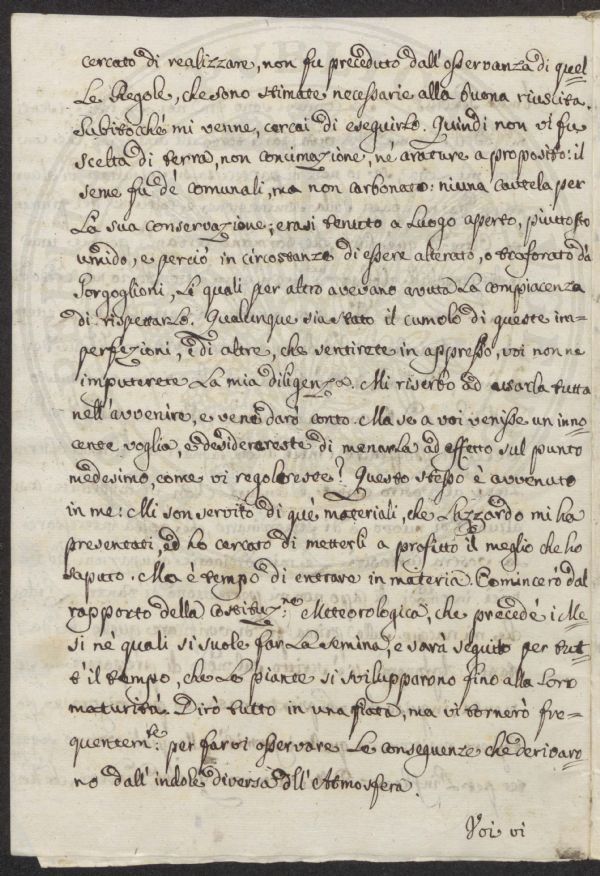 cercato di realizzare, non fu preceduto dall'osservanza di quel=
Le Regole, che sono stimate necessarie alla buona riuscita.
Subitoché mi venne, cercai di eseguirlo. Quindi non vi fu
scelta di terra, non concimazione, né arature a proposito: il
seme fu de' comunali, ma non carbonato: niuna cautela per
La sua conservazione; erasi tenuto a Luogo aperto, piuttosto
umido, e perciò in circostanze di essere alterato, o traforato da
Gorgoglioni, Li quali per altro avevano avuta La compiacenza
di rispettarlo. Qualunque sia stato il cumolo di queste im=
perfezioni, e di altre, che sentirete in appresso, voi non ne
imputerete La mia diligenza. Mi riserbo ad usarla tutta
nell'avvenire, e vene darò conto. Ma se a voi venisse un inno=
cente voglia, e desiderareste di menarla ad effetto sul punto
medesimo, come vi regolereste? Questo stesso è avvenuto
in me: Mi son servito di que' materiali, che L'azzardo mi ha
presentati, ed ho cercato di metterli a profitto il meglio che ho
saputo. Ma è tempo di entrare in materia. Comincerò dal
rapporto della costituz.ne Meteorologica, che precedé i Me=
si ne' quali si suole far La semina, e sarà seguito per tut=
t'il tempo, che Le piante si svilupparono fino alla Loro
maturità. Dirò tutto in una fiata, ma vi tornerò fre=
quentem.te per farvi osservare Le conseguenze che derivaro=
no dall'indole diversa dell'Atmosfera.
Voi vi